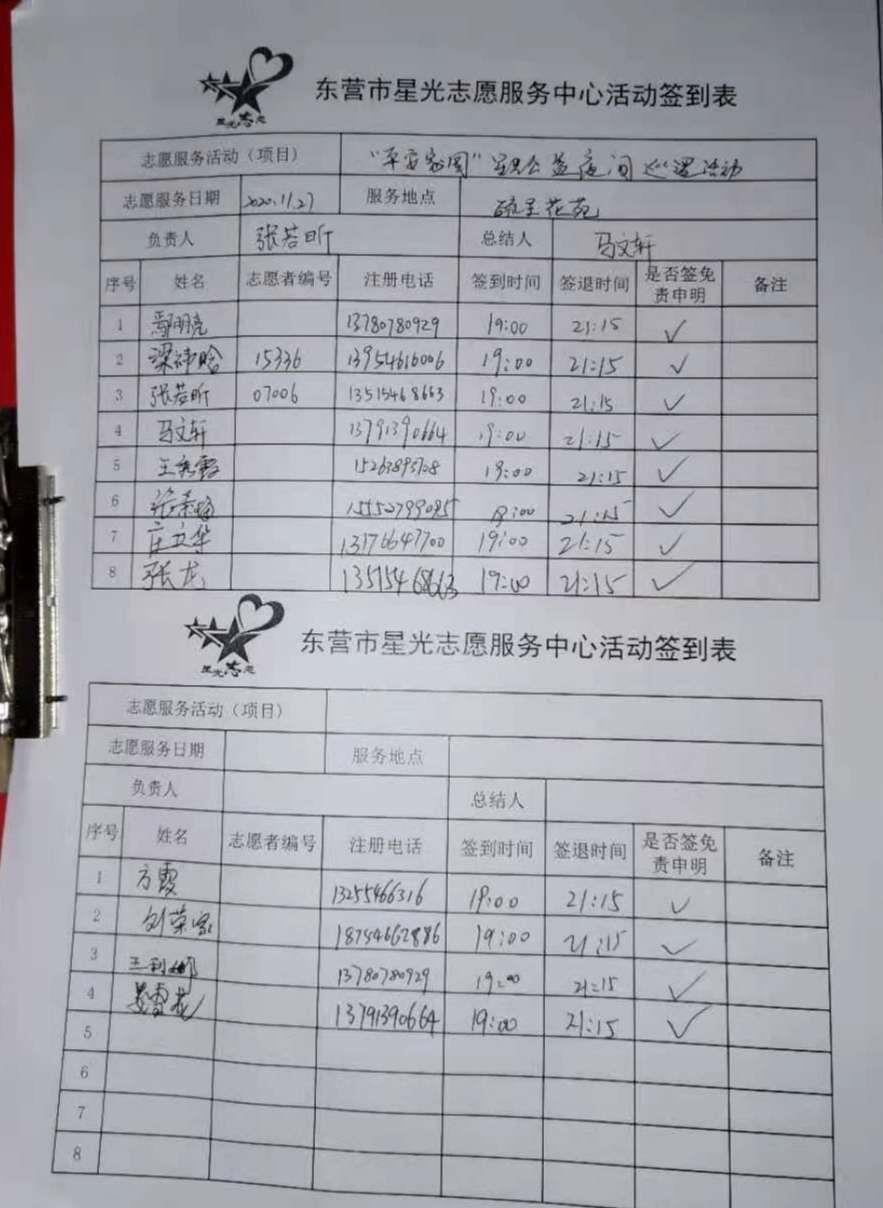 星光志愿
东营市星光志愿服务中心活动签到表
志愿服务活动（项目） "平安家园"星光公益夜间巡逻活动
志愿服务日期 2020.11.27 服务地点 花苑
负责人 张若昕 总结人 马文轩
序号 姓名 志愿者编号 注册电话 签到时间 签退时间 是否签免责申明 备注
1 13780780929 19:00 21:15 ✓
2 梁祎晗 15336 13954616006 19:00 21:15 ✓
3 张若昕 07006 13515468663 19:00 21:15 ✓
4 马文轩 13791390664 19:00 21:15 ✓
5 王秀霞 19:00 21:15 ✓
6 19:00 21:15 ✓
7 庄立华 13176647700 19:00 21:15 ✓
8 张龙 13515468663 19:00 21:15 ✓
星光志愿
东营市星光志愿服务中心活动签到表
志愿服务活动（项目）
志愿服务日期 服务地点
负责人 总结人
序号 姓名 志愿者编号 注册电话 签到时间 签退时间 是否签免责申明 备注
1 方霞 13255466316 19:00 21:15 ✓
2 刘荣 18754662886 19:00 21:15 ✓
3 王利娜 13780780929 19:00 21:15 ✓
4 雪花 13791390664 19:00 21:15 ✓
5
6
7
8